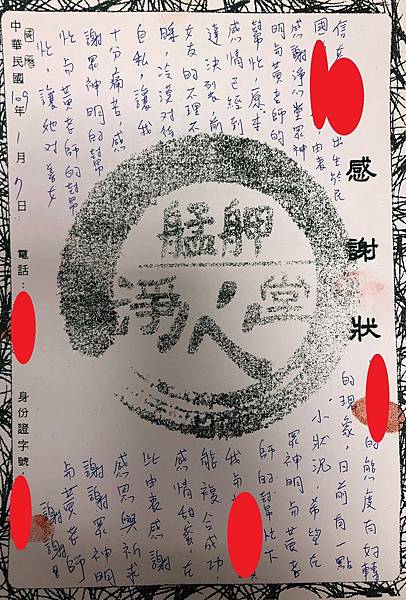 感謝狀
信女 出生於民
國 ,由衷
感謝淨心堂眾神
明与黃老師的
幫忙,原本
感情已經到
達決裂,前
女友的不理不
睬,冷漠对待
自私,讓我
十分痛苦,感
謝眾神明的幫
忙与黃老師的幫
忙,讓她对善女
的態度有好轉
的現象,日前有一點
小狀況,希望在
眾神明与黃老
師的幫忙下
我与
能複合成功,
感情甜蜜,在
此由衷感謝
感恩與祈求
謝謝眾神明
与黃老師
謝謝!!
艋舺
淨心堂
國曆
中華民國109年1月7日 電話: 身份證字號